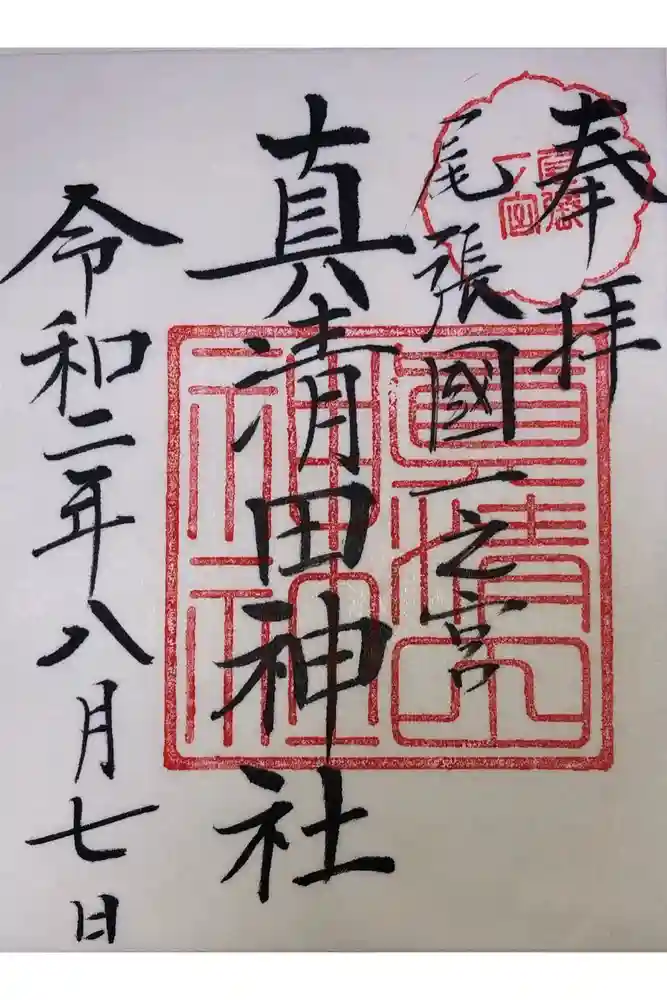 奉拝
尾張國一之宮
真清田神社
令和二年八月七日
尾張
一宮
真清田
神社